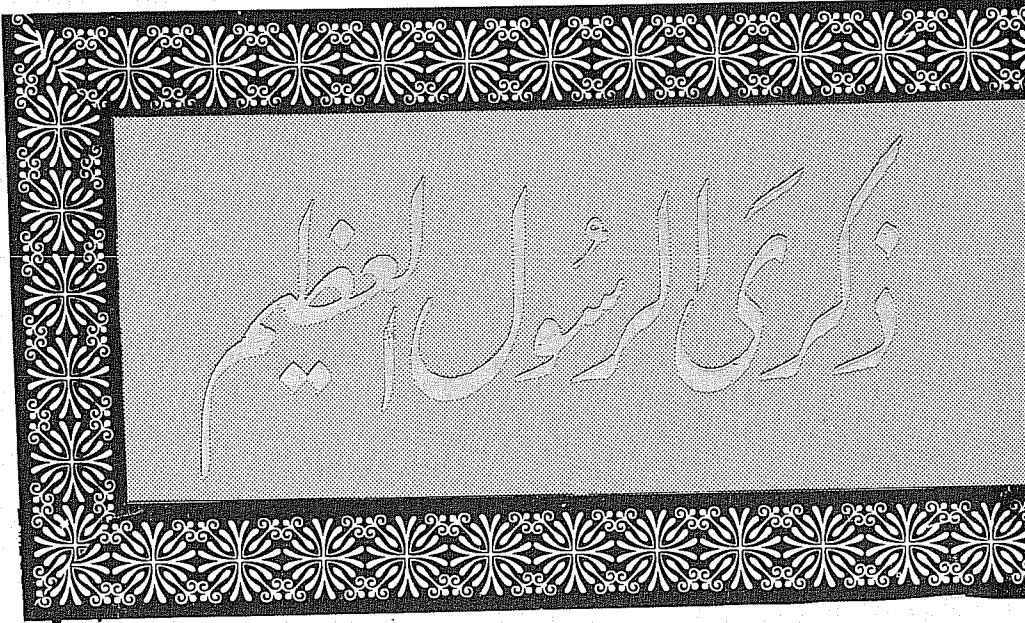 ذكرى الرسُول العظيم